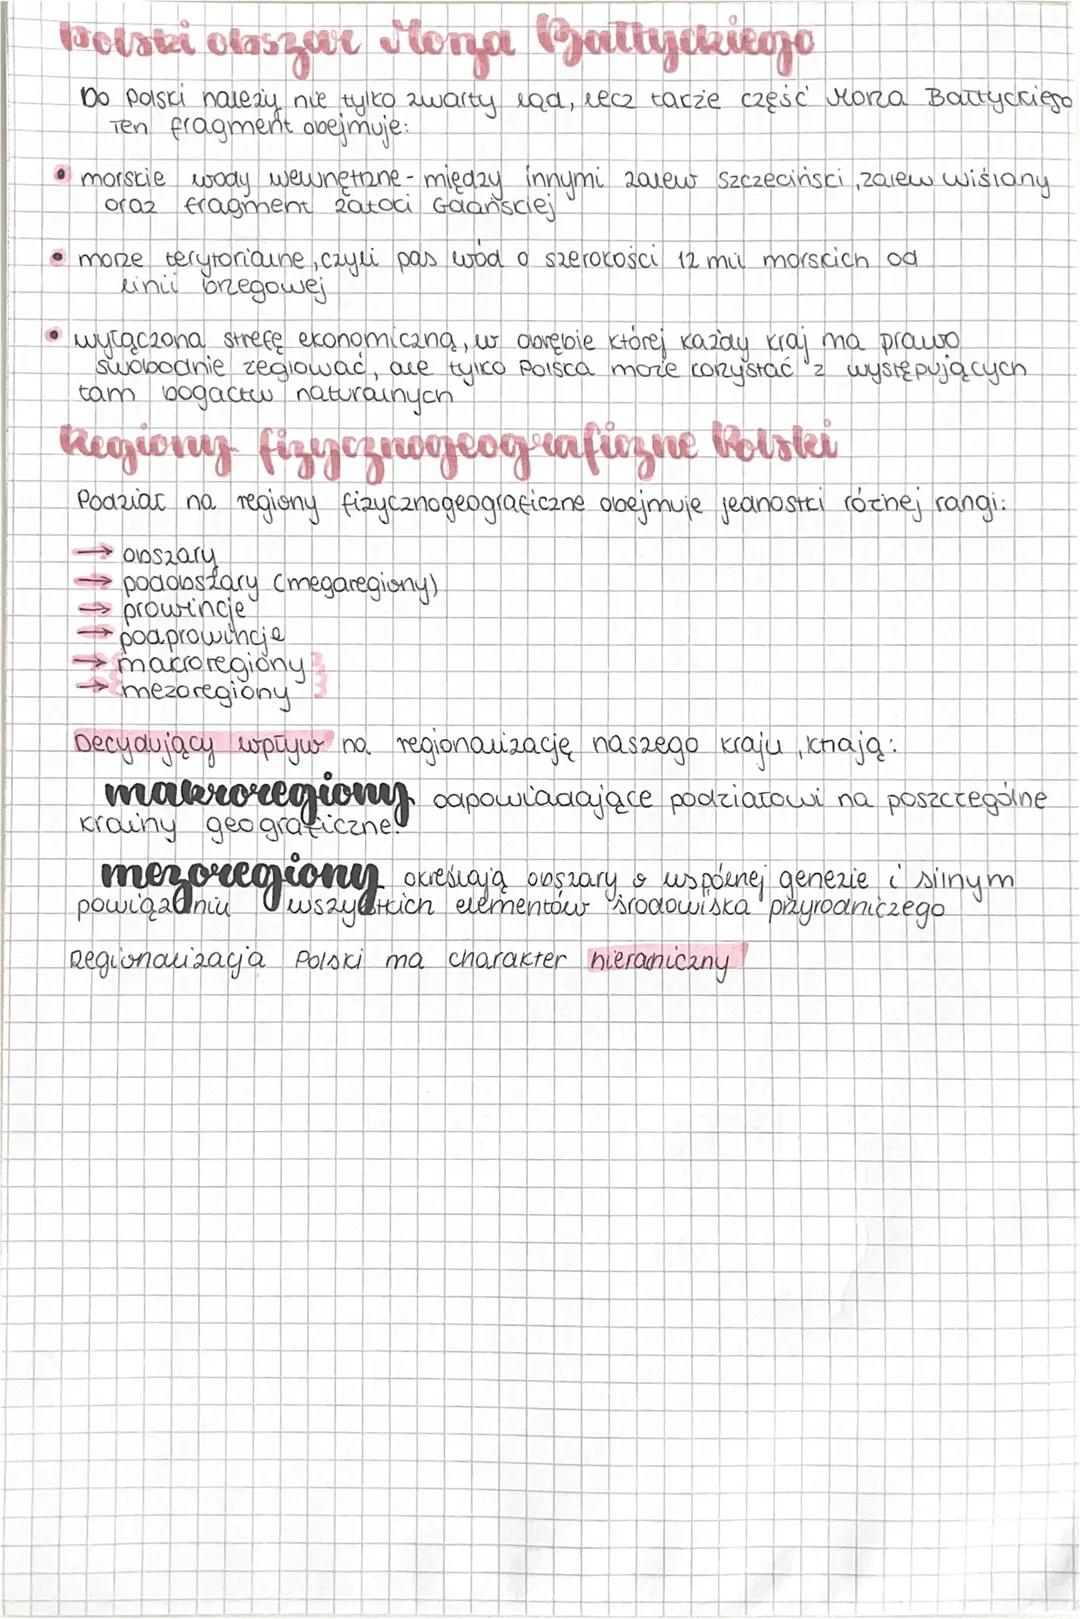 Polski obszar Morza Bałtyckiego
Do Polski należy nie tylko zwarty ląd, lecz także część Morza Bałtyckiego
Ten fragment obejmuje:
• morskie wody wewnętrzne - między innymi zalew Szczeciński, zalew wiślany
oraz fragment zatoki Gdańskiej
• morze terytorialne, czyli pas wód o szerokości 12 mil morskich od
linii brzegowej
• wyłączoną strefę ekonomiczną, w obrębie której każdy kraj ma prawo
swobodnie żeglować, ale tylko Polska może korzystać z występujących
tam bogactw naturalnych
Regiony fizycznogeograficzne Polski
Podział na regiony fizycznogeograficzne obejmuje jednostki różnej rangi:
→ obszary
→ podobszary (megaregiony)
→ prowincje
→ podprowincje
→ makroregiony
→ mezoregiony
Decydujący wpływ na regionalizację naszego kraju, mają:
makroregiony odpowiadające podziałowi na poszczególne
krainy geograficzne.
mezoregiony określają obszary o wspólnej genezie i silnym
powiązaniu wszystkich elementów środowiska przyrodniczego
Regionalizacja Polski ma charakter hierarhiczny